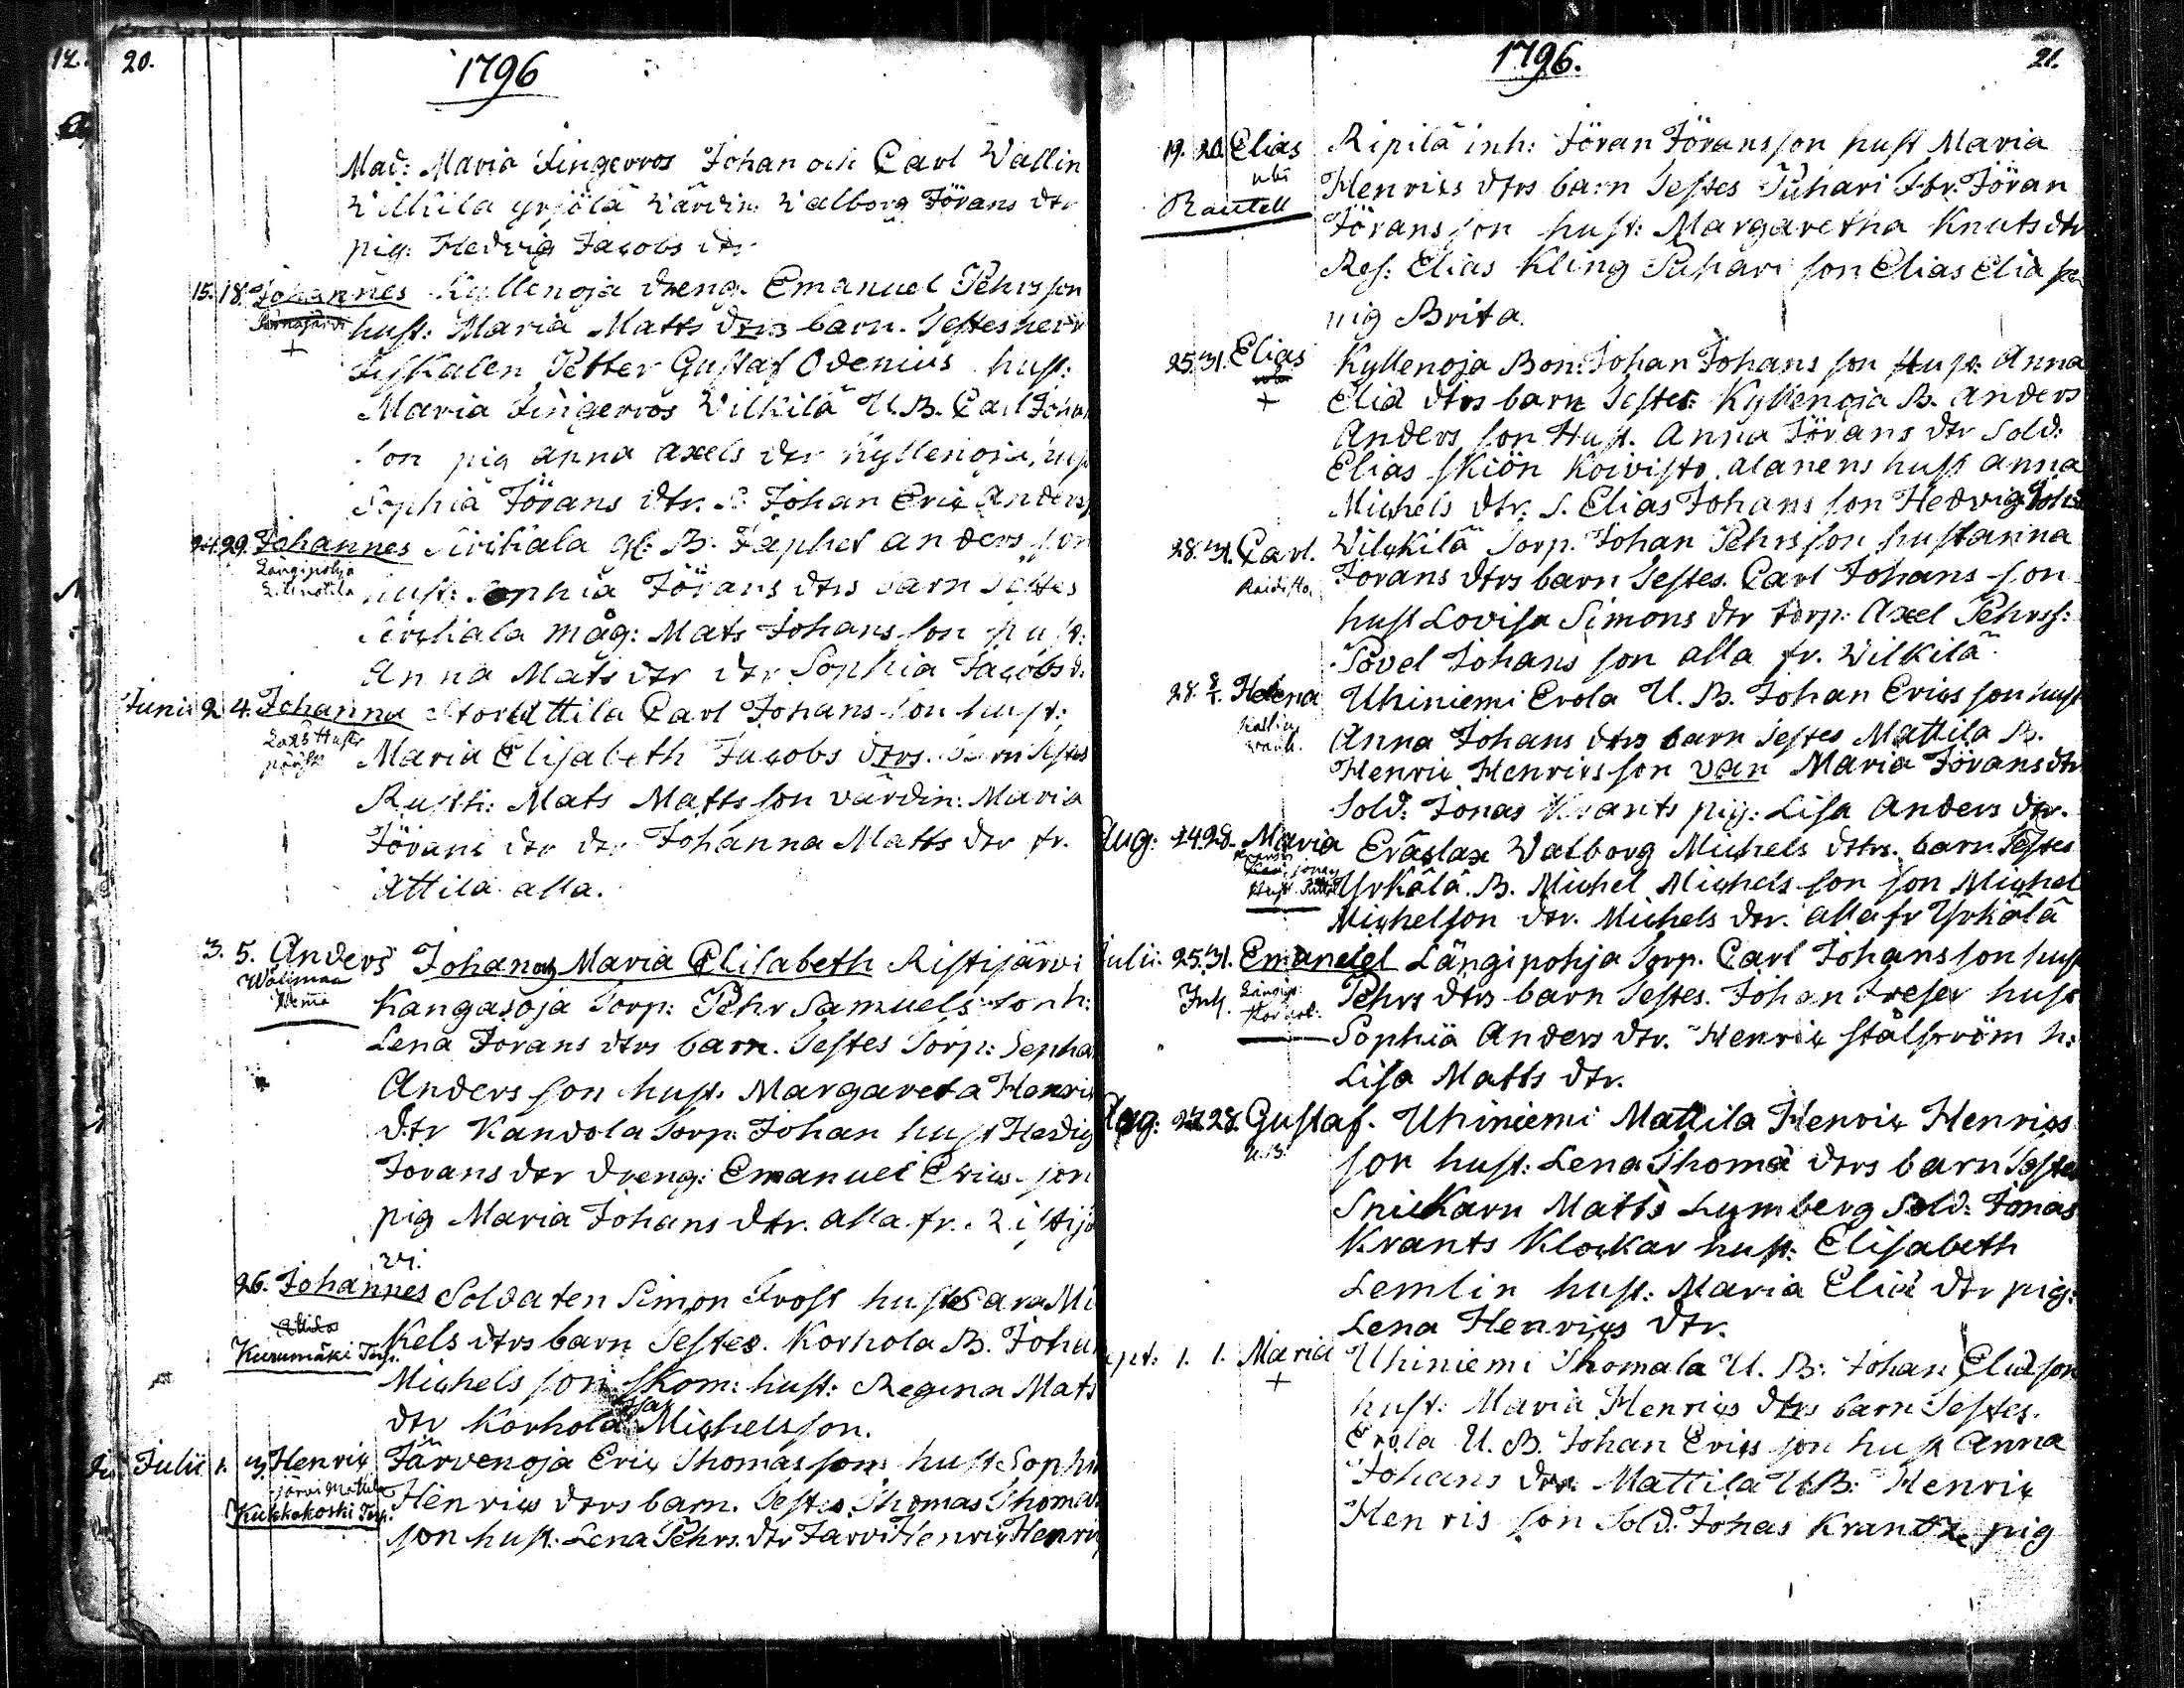 12.
20.
1796
Mad: Maria Fingerros Johan och Carl Wallin
Willkila yrjölä Värdin: Walborg Jörans dtr
pig: Hedvig Jacobs dtr
15. 18. Johannes Kyllenoja dreng. Emanuel Pehrsson
hust: Maria Matts dtrs barn. Testes herr
+
Fiskalen Petter Gustaf Odenius hust:
Maria Fingerros Wilkilä U.B. Carl Johan
son pig anna axels dtr Kyllenoja, hust
Sophia Jörans dtr. S. Johan Eric Anders
24. 29. Johannes gl: B: Japhet anders son
Langipohja
hust: Sophia Jörans dtrs barn Testes
måg: Mats Johans son hust:
Anna Mats dtr dtr Sophia Jacobs d.
Junii 2 4. Johanna Stor Attila Carl Johans son hust:
Lars Hustr
Maria Elisabeth Jacobs dtrs. barn Testes
Rusth: Mats Matts son värdin: Maria
Jörans dtr dtr Johanna Matts dtr fr.
Attila alla.
3. 5. Anders Johan och Maria Elisabeth Ristijärvi
Wälimaa
Kangasoja Torp: Pehr Samuels son h:
Lena Jorans dtrs barn. Testes Torp: Sepha
Anders son hust. Margareta Henric
dtr Kandola Torp: Johan hust Hedvig
Jorans dtr dreng: Emanuel Erics son
pig Maria Johans dtr. alla fr. Ristijä
rvi.
26. Johannes Soldaten Simon Frost hust Sara Mi
Attila
kels dtrs barn Testes. Korhola B. Johan
Kurumäki Torp.
Michels son Skom: hust: Regina Mats
dtr Korhola Michelsson.
Julii 1. 3 Henric Järvenoja Eric Thomas son hust: Sophia
järvi Mattila
Henrics dtrs barn. Testes Thomas Thomas
Kukkakoski Torp.
son hust: Lena Pehrs. dtr Jarvi Henric Henric
1796.
21.
19. 20. Elias Ripilä inh: Jöran Jöransson hust Maria
Henrics dtrs barn Testes Puhari Fbr. Jöran
Rautell
Jörans son hust: Margaretha Knuts dtr
Res: Elias Kling Puhari son Elias Elia
pig Brita.
25. 31. Elias Kyllenoja Bon: Johan Johans son Hust: Anna
+
Elia dtrs barn Testes: Kyllenoja B. Anders
Anders son Hust. Anna Jörans dtr Sold:
Elias Skiön Koivisto. alanens hust anna
Michels dtr. S. Elias Johans son Hedvig Johs
28. 31. Carl. Wilckilä Torp. Johan Pehrsson hust anna
Raidisto.
Jorans dtrs barn Testes. Carl Johans son
hust Lovisa Simons dtr torp: Axel Pehrs:
Povel Johans son alla fr. Wilkilä.
28. Helena Uhiniemi Erola U. B. Johan Erics son hust
Anna Johans dtrs barn Testes Mattila B.
Henric Henrics son van Maria Jörans dtr
Sold: Jonas Krants pig: Lisa Anders dtr.
Aug: 24 28. Maria Eräslax Walborg Michels dtrs. barn Testes
Yrkälä. B. Michel Michels son son Michel
Michelson dtr. Michels dtr. alla fr Yrkälä
Julii. 25. 31. Emanuel Längipohja Torp. Carl Johansson hust
Pehrs dtrs barn Testes. Johan Freser hust
Sophia Anders dtr. Henric Stålström h:
Lisa Matts dtr.
Aug: 28. Gustaf. Uhiniemi Mattila Henric Henrics
U.B.
son hust: Lena Thoma dtrs barn Testes
Snickarn Matts Lymberg Sold: Jonas
Krants Klockar hust: Elisabeth
Lemlin hust: Maria Elia dtr pig:
Lena Henrics dtr.
Sept: 1. 1. Maria Uhiniemi Thomala U. B: Johan Elia son
+
hust: Maria Henrics dtrs barn Testes.
Erola U. B. Johan Erics son hust Anna
Johans dtr. Mattila U.B: Henric
Henris son Sold: Johas Krantz pig